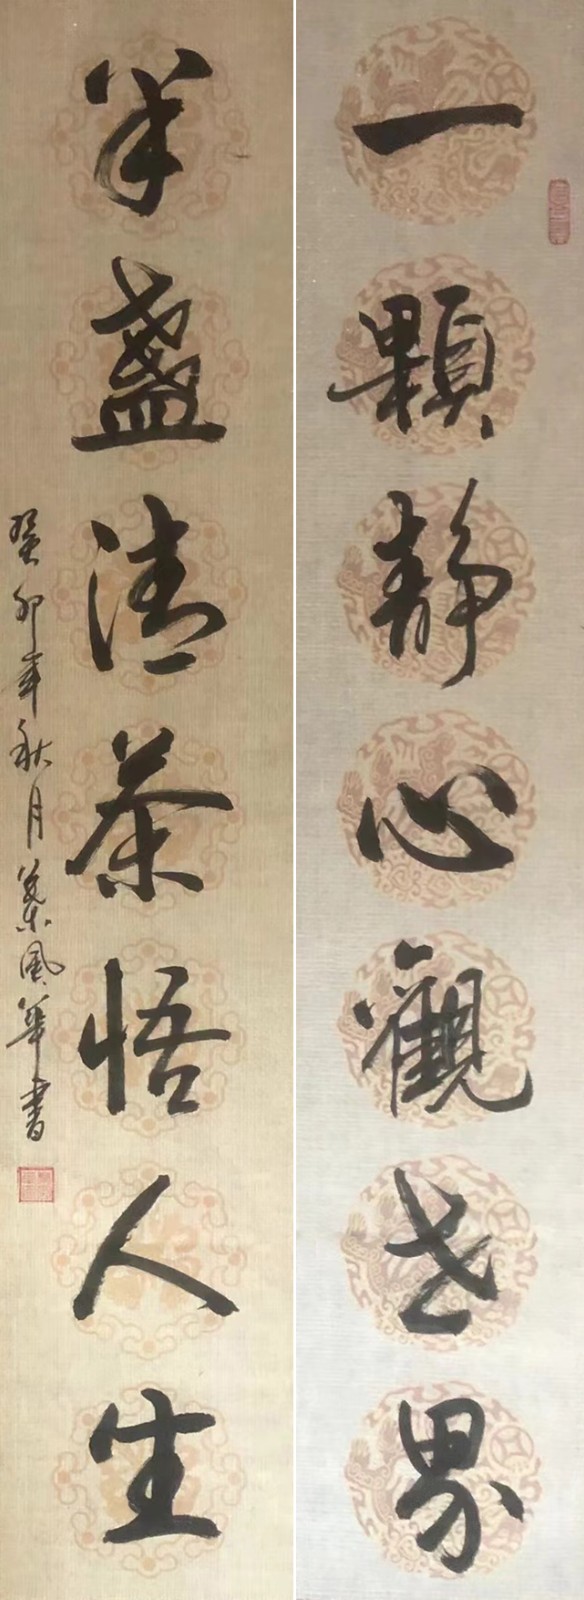 一顆静心觀世界
半盏清茶悟人生
癸卯年秋月葉風華書